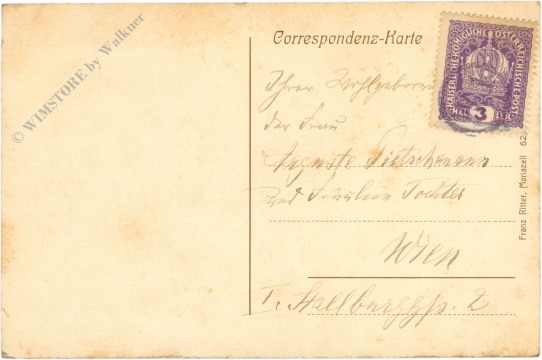 © WIMSTORE by Walkner
Correspondenz-Karte
KAISERLICHE KÖNIGLICHE ÖSTERREICHISCHE POST
3
HELLER
Ihrer Wohlgeboren
der Frau
Auguste Pietschmann
und Fräulein Tochter
Wien
I.
2
Franz Ritter, Mariazell 62.